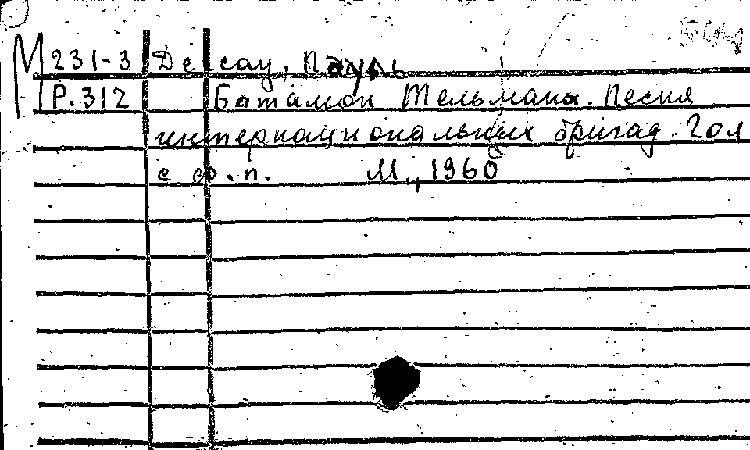 М 231-3 Дессау, Пауль
Р.312 Батальон Тельмана. Песня
интернациональных бригад. Гол
с ф.п. М., 1960